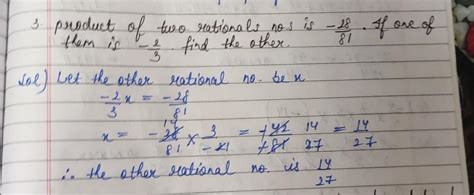 3. product of two rationals nos is -28/81. If one of
them is -2/3. find the other.
Sol) Let the other rational no. be x
-2/3 x = -28/81
x = -28/81 × 3/-21 = 14/27 = 14/27
∴ the other rational no. is 14/27